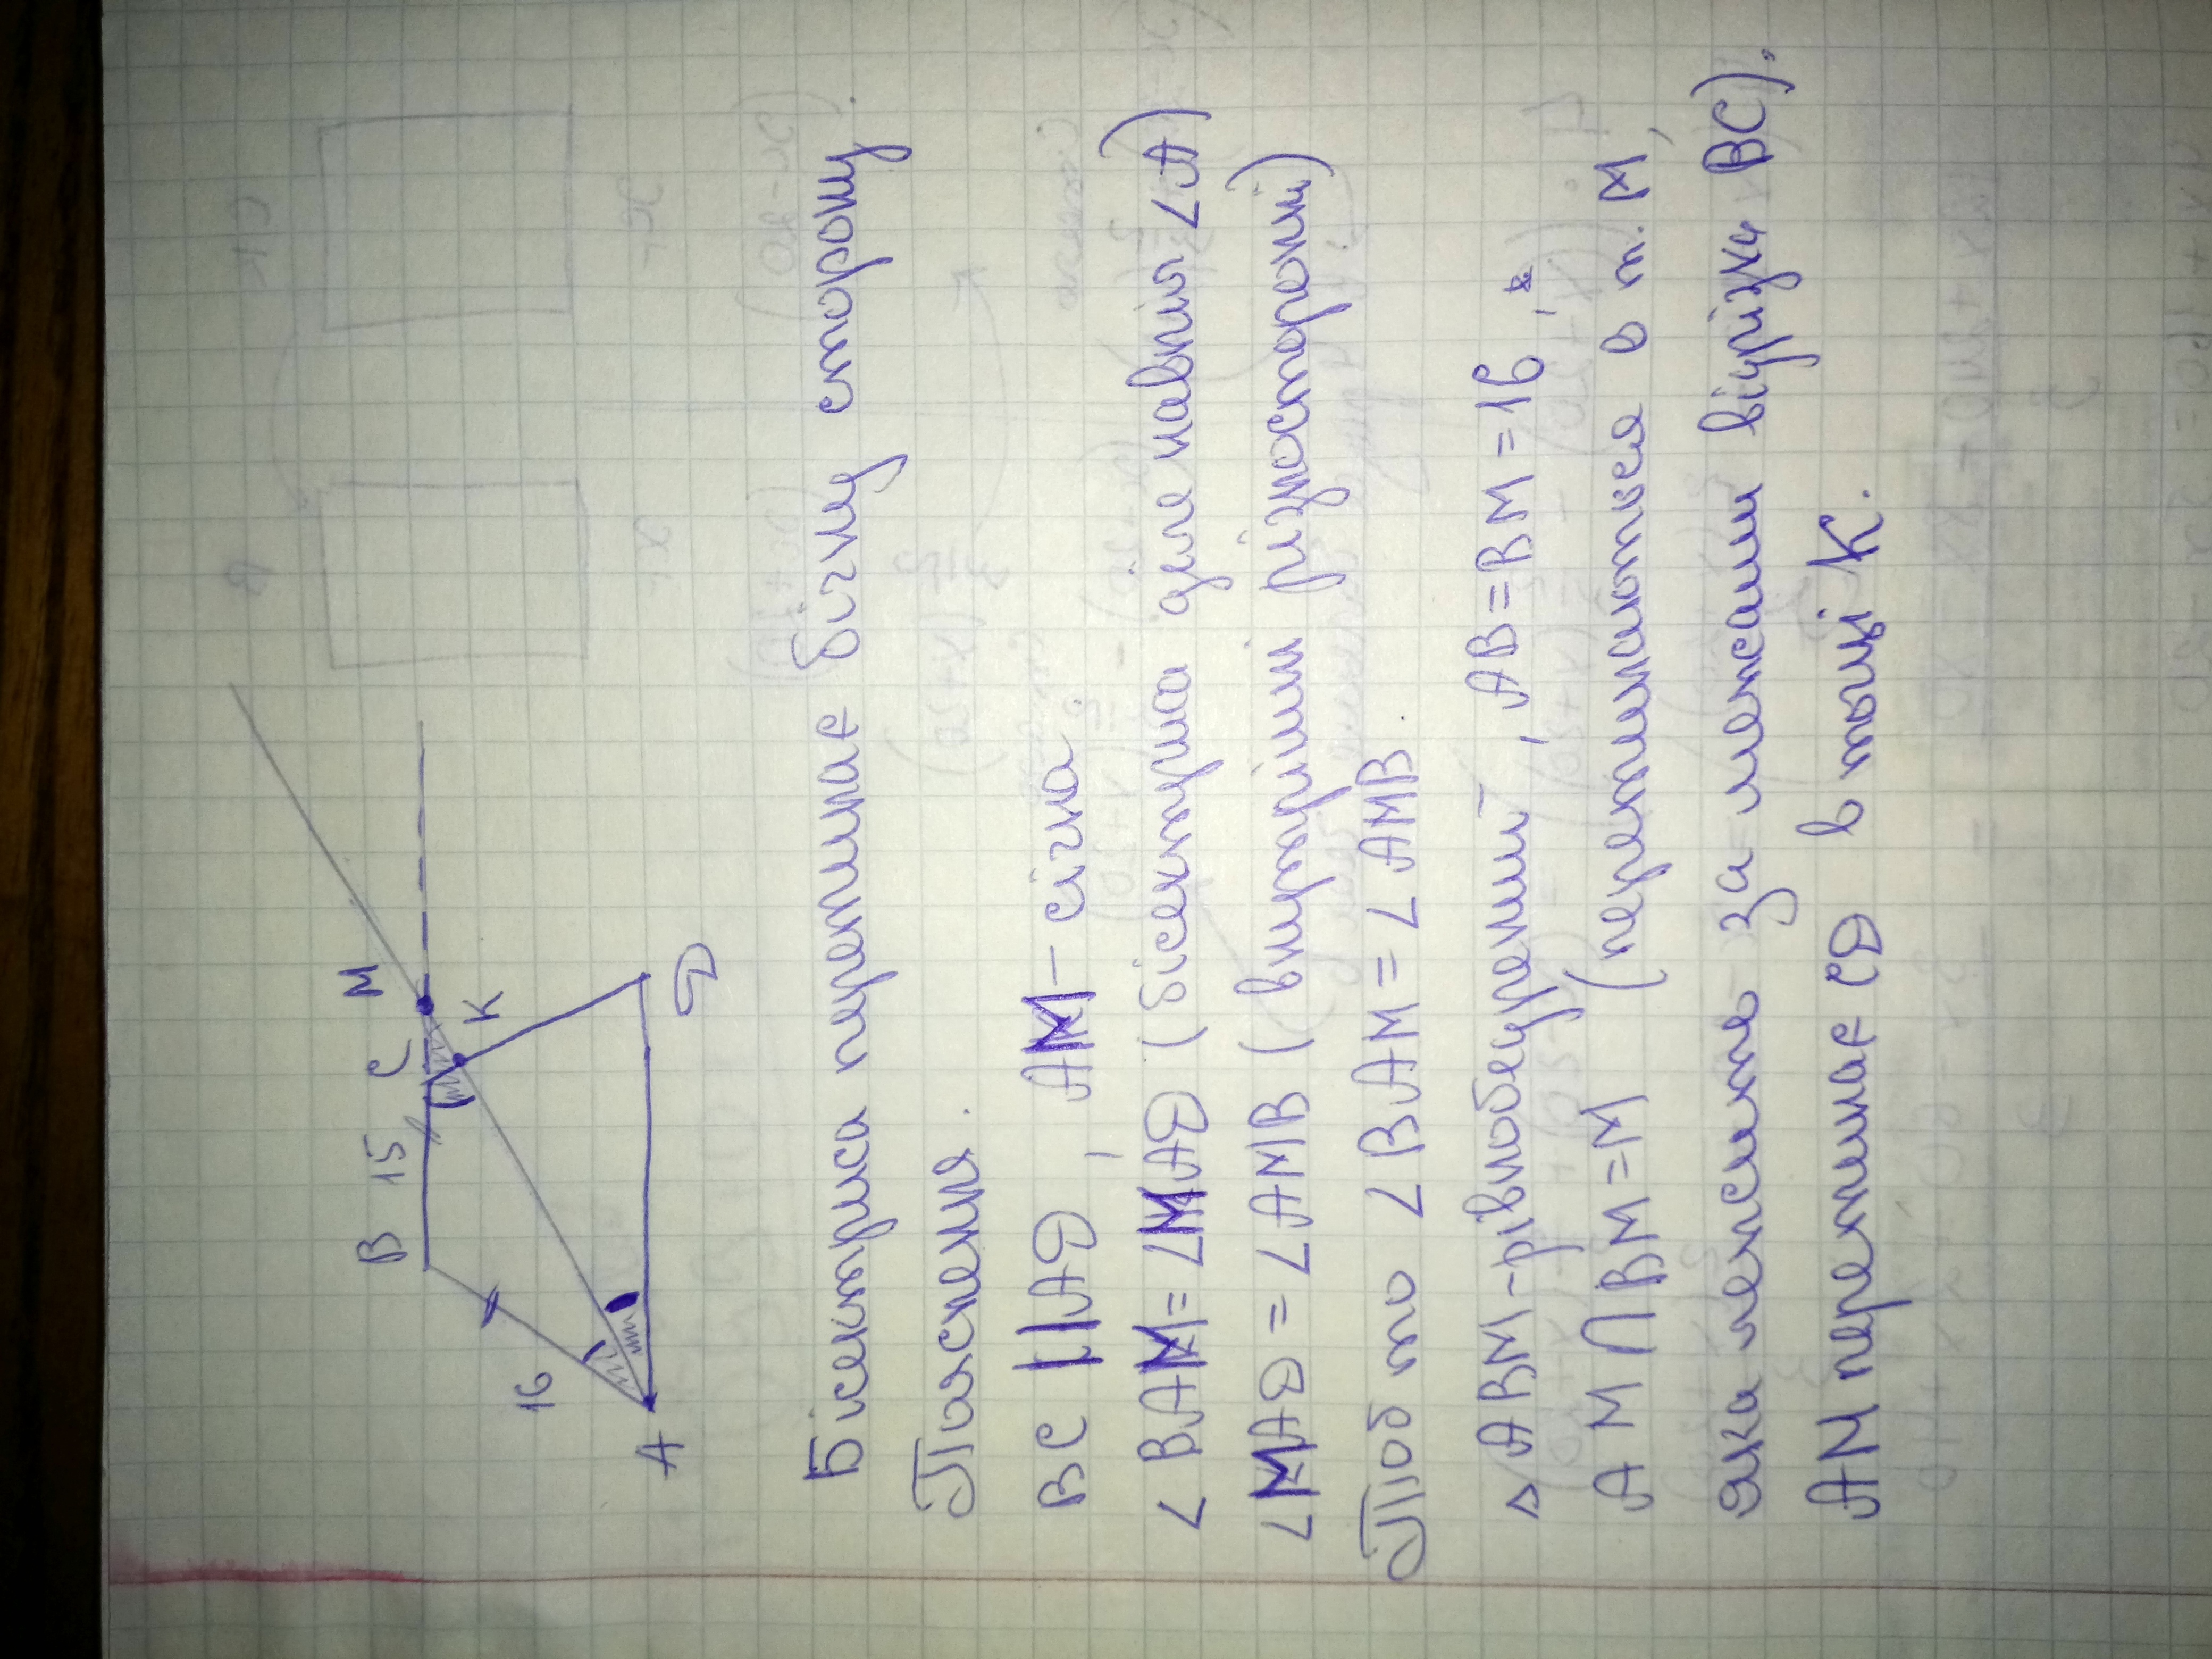 B 15 C M
K
16
A D
Бісектриса перетинає бічну сторону.
Пояснення.
BC || AD, AM - січна
∠BAM = ∠MAD (бісектриса діле навпіл ∠A)
∠MAD = ∠AMB (внутрішні різносторонні)
Тоб то ∠BAM = ∠AMB.
△ ABM - рівнобедрений, AB = BM = 16,
AM ∩ BM = M (перетинаються в т. M,
яка лежить за межами відрізка BC).
AM перетинає CD в точці K.